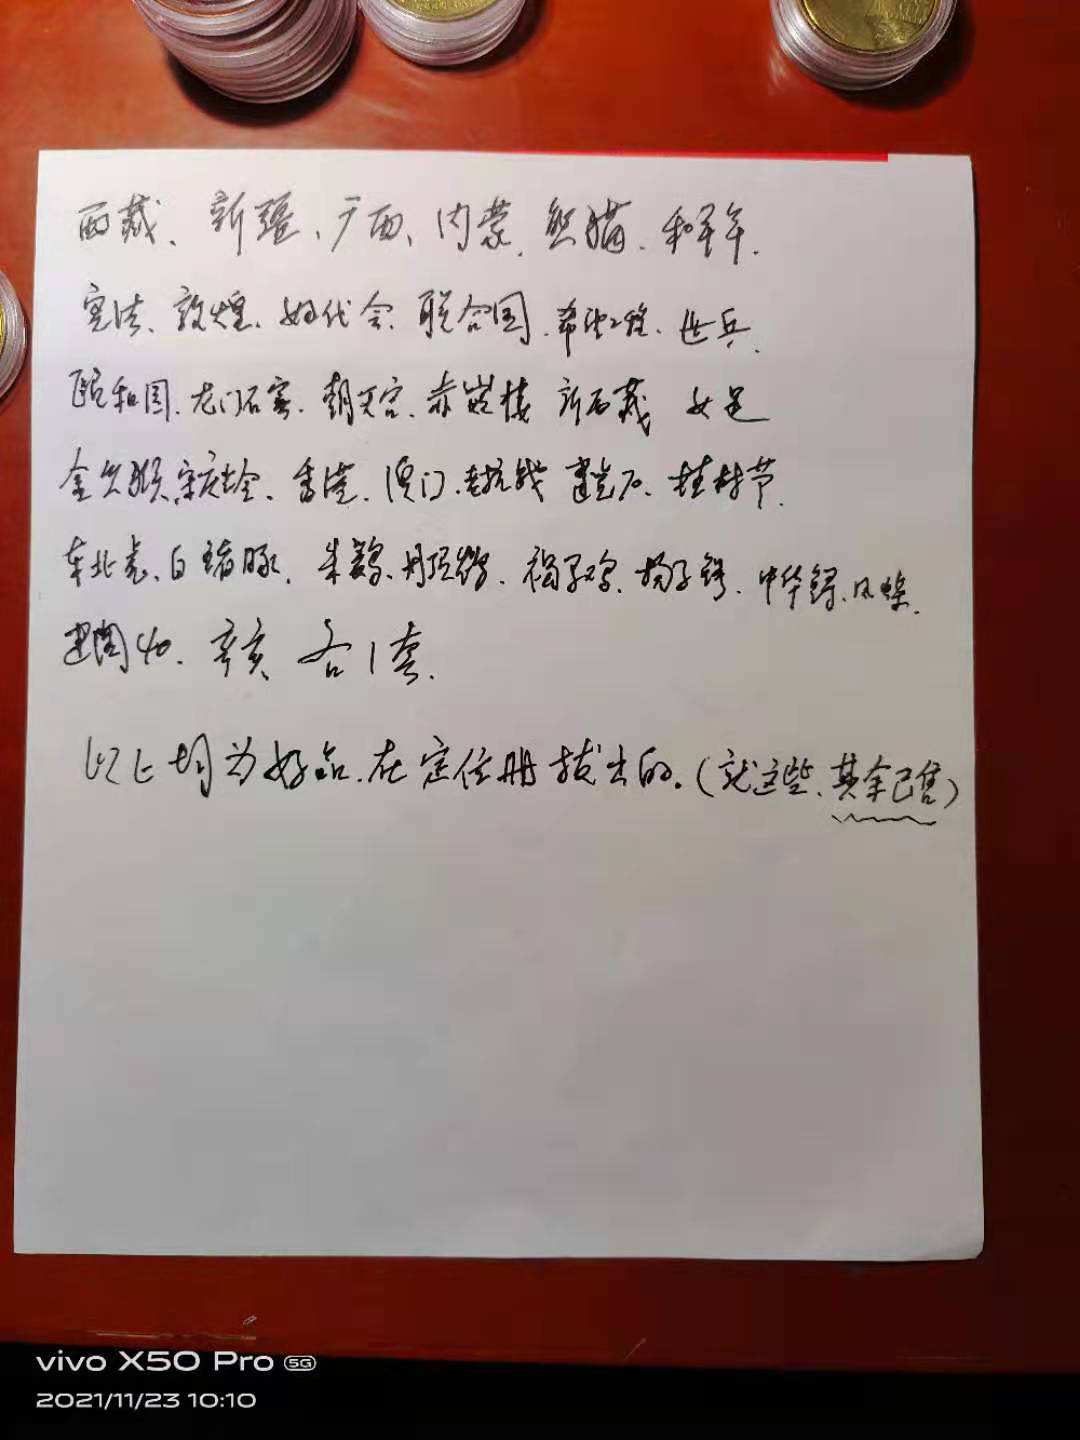 西藏、新疆、广西、内蒙、熊猫、和平年、
宪法、敦煌、妇代会、联合国、希望工程、世乒、
颐和园、龙门石窟、朝天宫、赤嵌楼 新西藏 女足
金丝猴、宋庆龄、香港、澳门、老抗战 建党70、植树节、
东北虎、白鳍豚、朱鹮、丹顶鹤、褐马鸡、扬子鳄、中华鲟、凤蝶、
建国40、辛亥 各1套、
以上均为好品、在定位册拔出的。(就这些、其余已售)
vivo X50 Pro 5G
2021/11/23 10:10